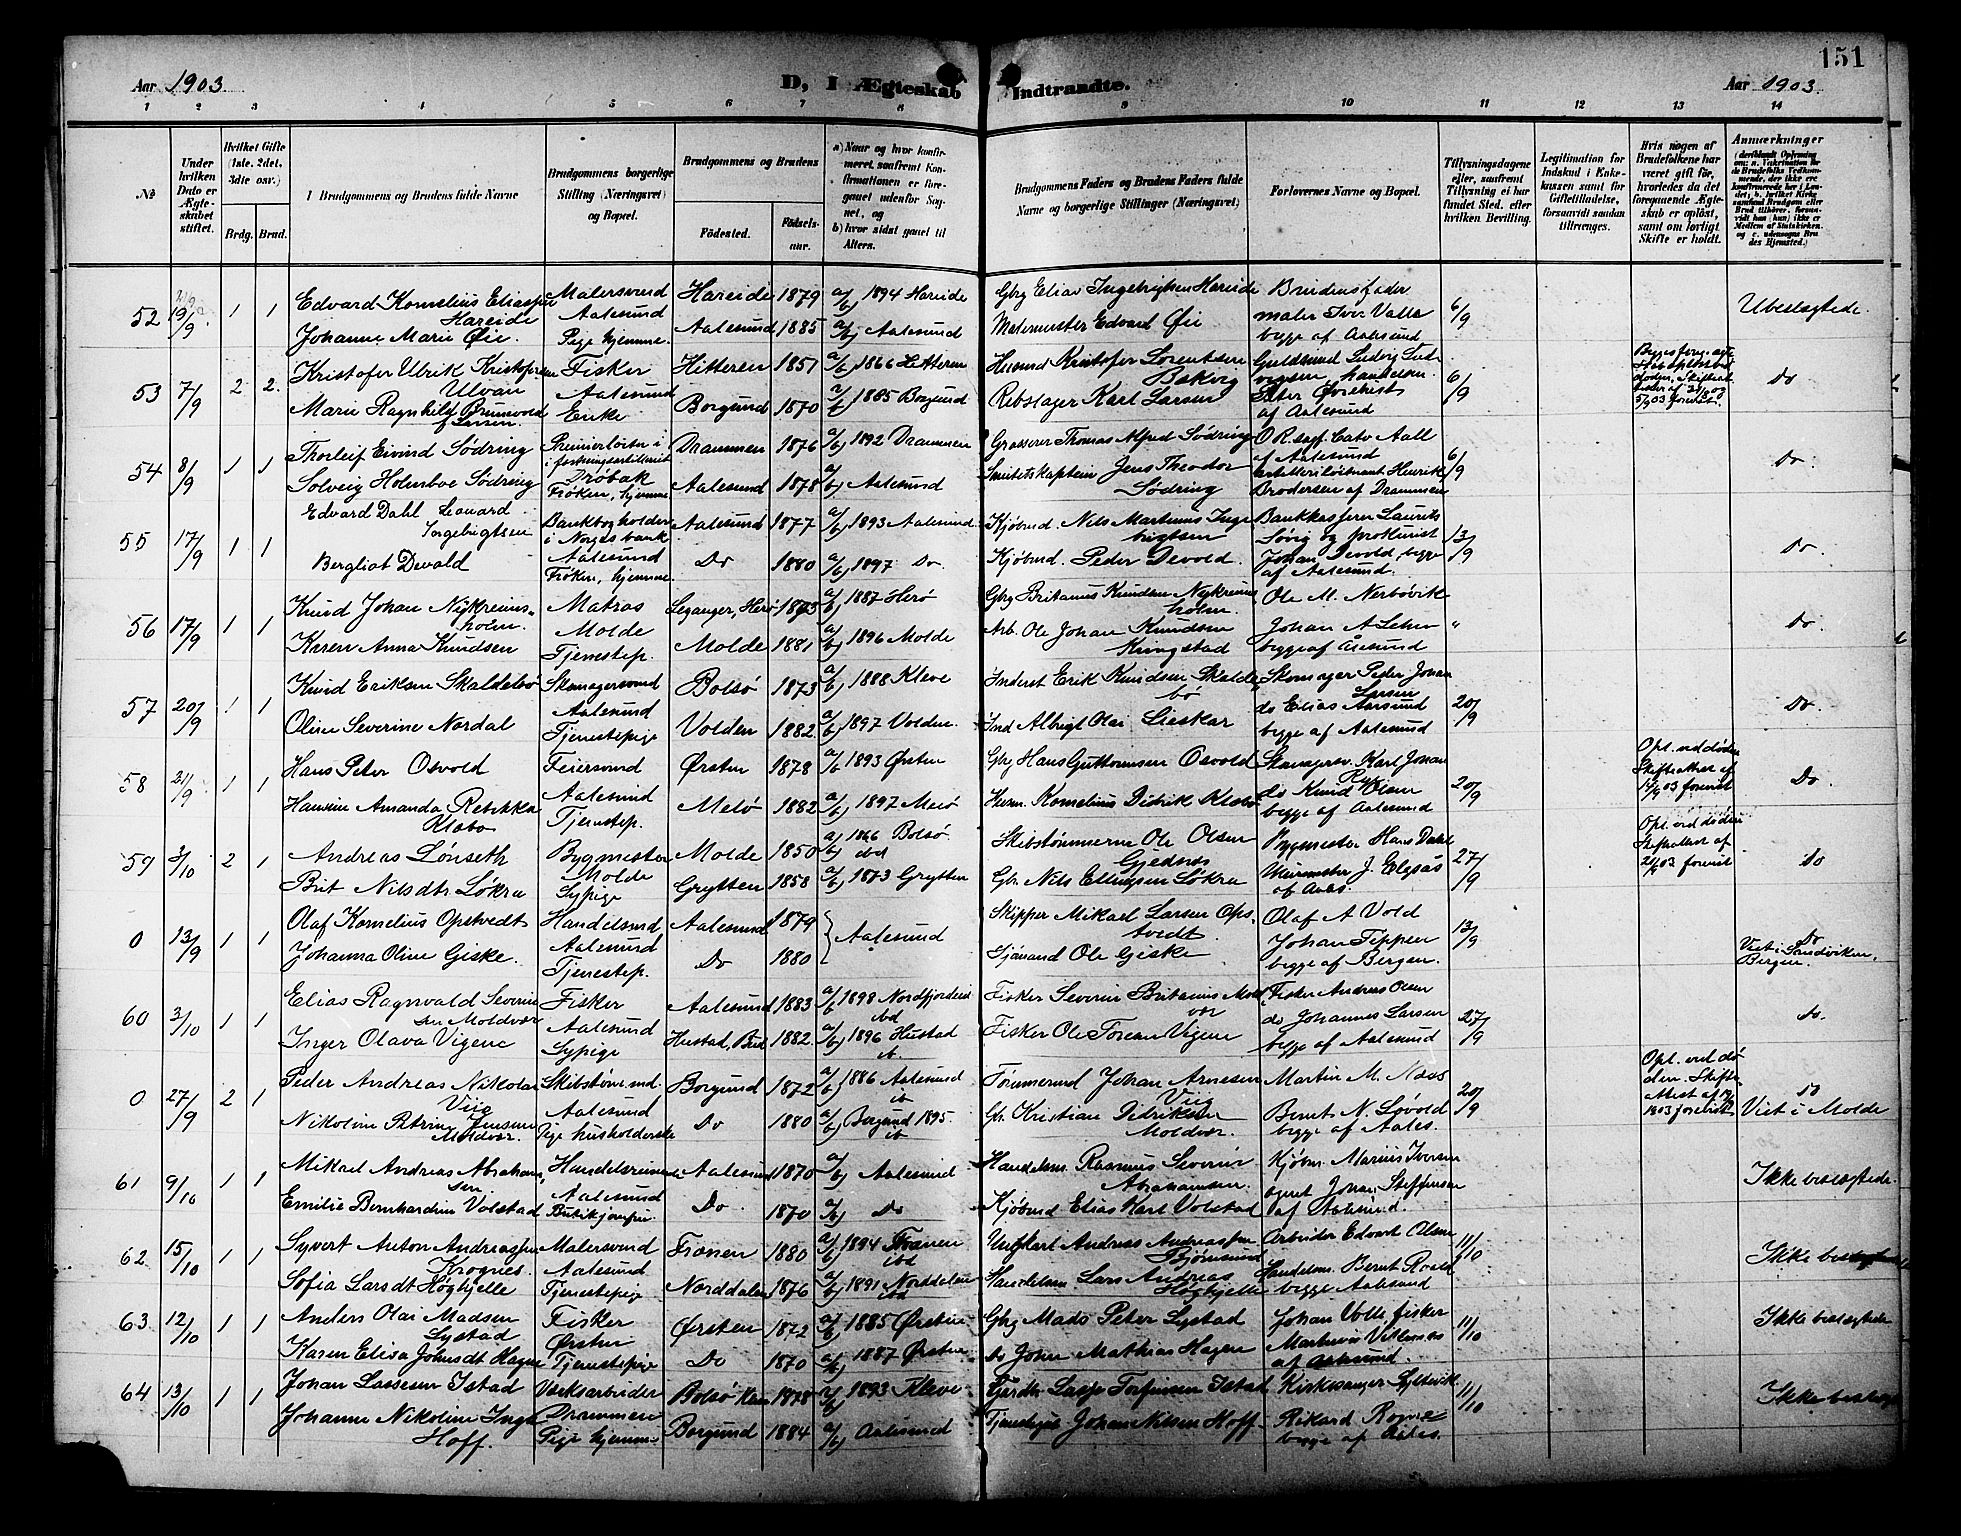 151
Aar 1903. D, I Ægteskab Indtraadte. Aar 1903.
1 2 3 4 5 6 7 8 9 10 11 12 13 14
№
Under hvilken Dato er Ægteskabet stiftet.
Hvilket Gifte (1ste, 2det, 3die osv.)
Brdg. Brud.
Brudgommens og Brudens fulde Navne
Brudgommens borgerlige Stilling (Næringsvei) og Bopæl.
Brudgommens og Brudens
Fødested. Fødselsaar.
a) Naar og hvor konfirmeret, saafremt Konfirmationen er foregaaet udenfor Sognet, og
b) hvor sidst gaaet til Alters.
Brudgommens Faders og Brudens Faders fulde Navne og borgerlige Stillinger (Næringsvei)
Forlovernes Navne og Bopæl.
Tillysningsdagene eller, saafremt Tillysning ei har fundet Sted, efter hvilken Bevilling.
Legitimation for Indskud i Enkekassen samt for Giftetilladelse, forsaavidt saadan tiltrænges.
Hvis nogen af Brudefolkene har været gift før, hvorledes da det foregaaende Ægteskab er opløst, samt om lovligt Skifte er holdt.
Anmærkninger
52 19/9 1 1 Edvard Kornelius Eliassen Hareide Malersvend Aalesund Hareide 1879 a/b) 1894 Hareide Gbrg Elias Ingebrigtsen Hareide Brudens fader 6/9 Ubeslægtede.
Johanne Marie Øie. Pige hjemme. Aalesund 1885 a/b) Aalesund Malermester Edvard Øie maler Iver Valle begge af Aalesund
53 7/9 2 2. Kristofer Ulrik Kristofersen Ulvan Fisker Aalesund Hitteren 1851 a/b) 1866 Hitteren Husmd Kristofer Lorentsen 6/9 Do
Marie Ragnhild Brunvold f. Larsen. Enke Borgund 1870 a/b 1885 Borgund Rebslager Karl Larsen af Aalesund
54 8/9 1 1 Thorleif Eivind Södring Premierløitn i Drøbak Drammen 1876 a/b) 1892 Drammen Grosserer Thomas Alfred Södring O.R.sagf. Cato Aall af Aalesund 6/9 Do.
Solveig Holmboe Södring Frøken, hjemme Aalesund 1878 a/b) Aalesund Jens Theodor Södring Henrik Brodersen af Drammen
55 17/9 1 1 Edvard Dahl Leonard Ingebrigtsen Bankbogholder i Norges bank Aalesund Aalesund 1877 a/b) 1893 Aalesund Kjøbmd. Nils Martinus Ingebrigtsen Bankkasserer Laurits 13/9 Do.
Bergliot Devold Frøken, hjemme. Do 1880 a/b) 1897 Do. Kjöbmd. Peder Devold. Johan Devold, begge af Aalesund.
56 17/9 1 1 Knud Johan Nykreimsholm. Matros Molde Leganger, Herö 1873 a/b) 1887 Herö Gbrg Britanus Knudsen Nykreimsholm. Ole M. Nerbövik " Do.
Karen Anna Knudsen Tjenestep. Molde 1881 a/b) 1896 Molde Arb. Ole Johan Knudsen Johan A begge af Aalesund
57 20/9 1 1 Knud Eriksen Skaldebö Skomagersvend Aalesund Bolsö 1873 a/b) 1888 Kleve Inderst Erik Knudsen Skaldebö Skomager Peder Johan Larsen 20/9 Do.
Oline Severine Nordal Tjenestepige Volden 1882 a/b) 1897 Volden. Ind Albrigt Olai Lieskar do Elias Aarsund begge af Aalesund
58 21/9 1 1 Hans Peter Osvold Feiersvend Aalesund Ørsten 1878 a/b 1893 Ørsten Gbrg Hans Guttormsen Osvold Karl Johan 20/9 Opl. ved døden Skifteattest af 14/9 03 forevist Do
Hansine Amanda Rebekka Klæbo Tjenestep. Melö 1882 a/b) 1897 Melö Husm. Kornelius Didrik Klæbo do Knud Olsen begge af Aalesund
59 3/10 2 1 Andreas Lönseth Bygmester Molde Molde 1850 a/b) 1866 Bolsö ibd Skibstömmerm Ole Olsen Gjednæs Bygmester Hans Dahl 27/9 Opl. ved døden Skifteattest af 21/9 03 forevist do
Brit Nilsdtr Lökra Sypige Grytten 1858 a/b) 1873 Grytten Gbr. Nils Ellingsen Lökra Murmester J. Elgsås af Aales.
0 13/9 1 1 Olaf Kornelius Opstvedt Handelsmd Aalesund Aalesund 1879 Aalesund Skipper Mikael Larsen Opstvedt. Olaf A Vold 13/9 Do Viet i Sandviken, Bergen.
Johanna Oline Giske. Tjenestep. Do 1880 Sjömand Ole Giske Johan Tippen begge af Bergen.
60 3/10 1 1 Elias Ragnvald Severinsen Moldvær Fisker Aalesund Aalesund 1883 a/b 1898 Nordfjordeid ibd Fisker Severin Britanus Moldvær Fisker Andreas Olsen 27/9 do.
Inger Olava Vigene Sypige Hustad, Bud 1882. a/b) 1896 Hustad ib. Fisker Ole Toreas Vigene do Johannes Larsen begge af Aalesund
0 27/9 2 1 Peder Andreas Nikolai Viig Skibstöm.md. Aalesund Borgund 1872 a/b) 1886 Aalesund ib Tömmermd Johan Arnesen Viig Martin M. Næss 20/9 Opl. ved døden. Skifteattest af 1903 forevist do Viet i Molde
Nikoline Petrine Jensine Moldvær. Pige husholderske Do 1880 a/b) Borgund 1895. ib Gbr. Kristian Didriksen Moldvær. Bernt N. Løvold begge af Aales.
61 9/10 1 1 Mikael Andreas Abrahamsen Handelsreisende Aalesund Aalesund 1870 a/b) Aalesund Handelsm. Rasmus Severin Abrahamsen. Kjöbm. Marius Iversen Ikke beslægtede.
Emilie Bernhardine Volstad Butikjomfru Do. 1870 a/b) Do Kjöbmd Elias Karl Volstad Johan Steffensen af Aalesund.
62 15/10 1 1 Syvert Anton Andreassen Krognes. Malersvend Aalesund Frænen 1880 a/b) 1894 Frænen ibd Andreas Andreassen Björnsund Arbeider Edvart Olsen 11/10 Ikke beslægtede
Sofia Larsdt Höghjelle Tjenestepige Norddalen 1876 a/b) 1891 Norddalen ibd Handelsm. Lars Andreas Höghjelle Handelsm. Bernt Roald begge Aalesund
63 12/10 1 1 Anders Olai Madsen Lystad Fisker Ørsten Ørsten 1872 a/b) 1885 Ørsten Gbrg Mads Peter Lystad Johan Volle fisker 11/10 Ikke beslægtede
Karen Elisa Johnsdt Hagen Tjenestepige Do 1870 a/b) 1887 Ørsten Do John Mathias Hagen af Aalesund.
64 13/10 1 1 Johan Lassesen Istad Værksarbeider Drammen Bolsö 1878 a/b) 1893 Kleve Lasse Torfinnsen Istad Kirkesanger 11/10 Ikke beslægt
Johanne Nikoline Inga Hoff. Pige hjemme Borgund 1884 a/b) Aalesund Johan Nilsen Hoff Rikard Rogne begge af Aales.